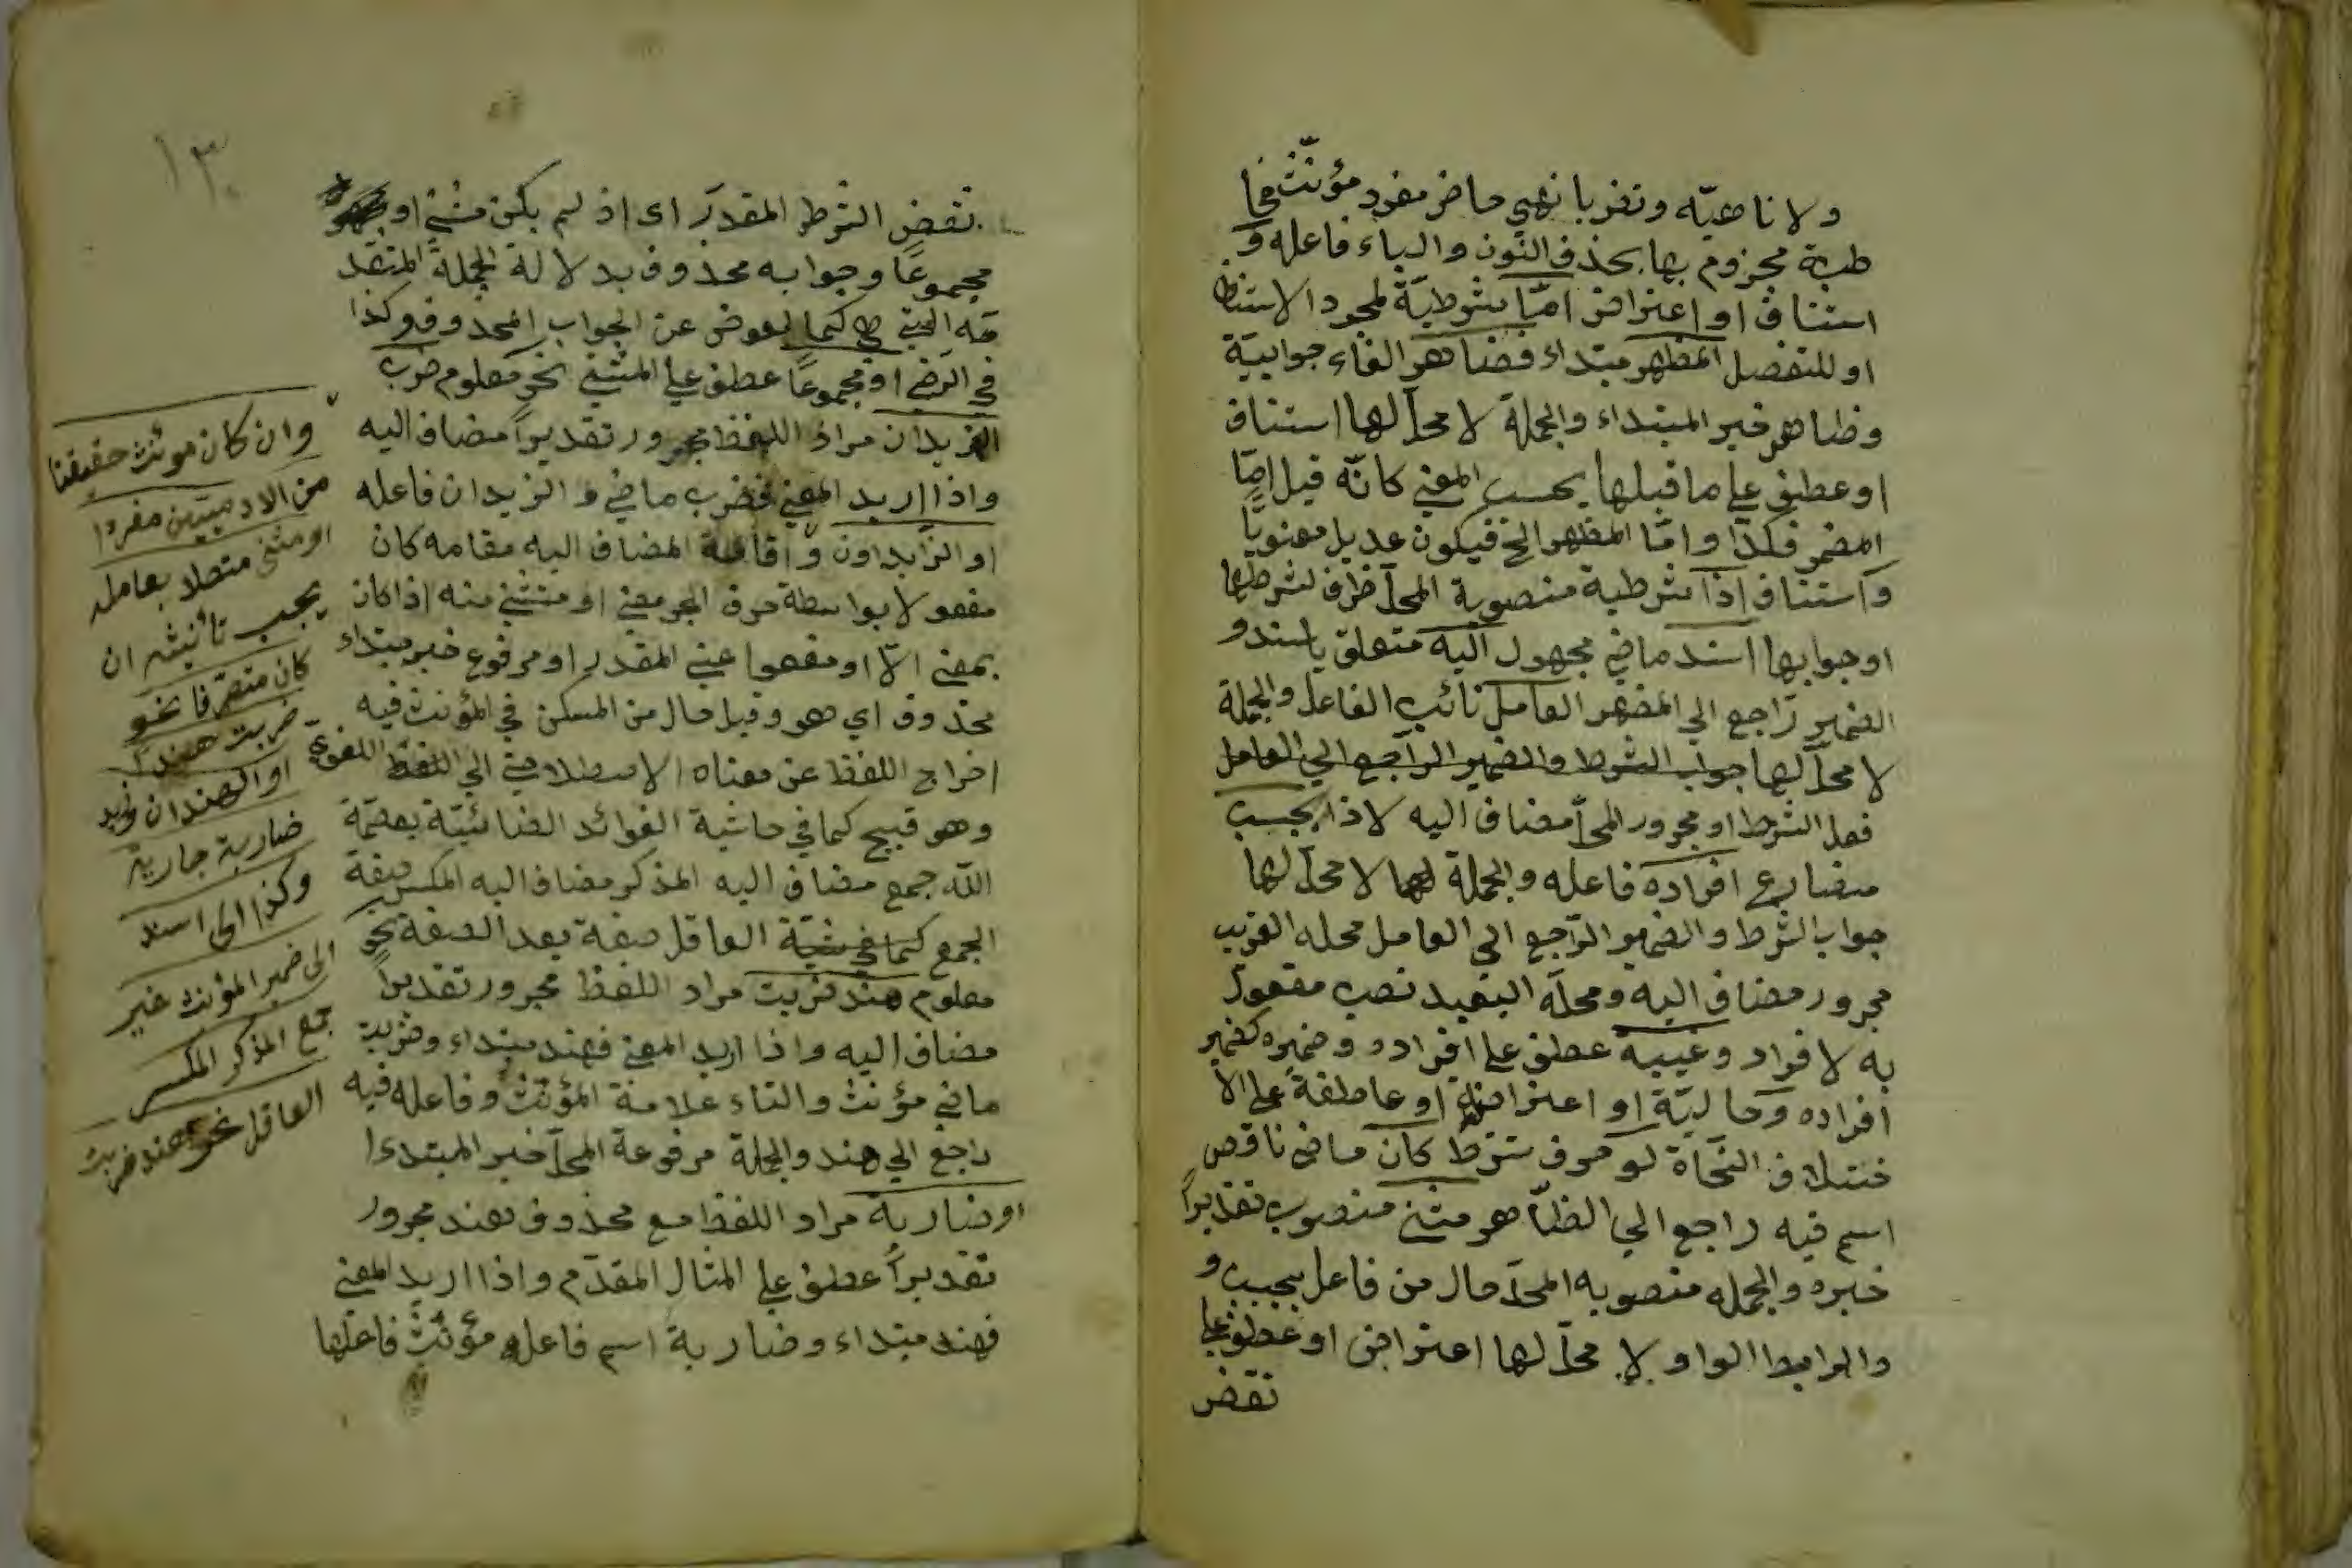 ولا ناهيّه وتقربا نهي حاضر مفرد مؤنّث مخا
طبة مجزوم بها بحذف النون والياء فاعله و
استناف او اعتراض امّا شرطيّة لمجرد الاستنا
او للتفصل المظهر مبتداء فضاهر الفاء جوابيّة
وظاهر خبر المبتداء والجملة لا محلّ لها استناف
او عطف على ما قبلها بحسب المعنى كانّه قيل امّا
المضمر فكذا وامّا المظهر الخ فيكون عديل معنويًّا
واستناف اذا شرطية منصوبة المحلّ ظرف لشرطها
او جوابها اسند ماضي مجهول اليه متعلق باسند و
الضمير راجع الى المضهر العامل نائب الفاعل والجملة
لا محلّ لها جواب الشرط والضمير الراجع الى العامل
فعل الشرط او مجرور المحلّ مضاف اليه لاذا يجب
مضارع افراده فاعله والجملة لها لا محلّ لها
جواب الشرط والضمير الرّاجع الى العامل محله القريب
مجرور مضاف اليه ومحلّه البعيد نصب مفعول
به لافراد وغيبة عطف على افراده وضميره كضمير
افراده وحاليّة او اعتراضية او عاطفة على الا
ختلاف النحّاة لو حرف شرط كان ماضى ناقص
اسم فيه راجع الى الظاهر مثنى منصوب تقديراً
خبره والجمله منصوبه المحلّ حال من فاعل يجب و
والرابط الواو ولا محلّ لها اعتراض او عطف على
نقض
١٣
نقض الشرط المقدّر اى اذ لم يكن مثنى او
مجموعًا وجوابه محذوف بدلالة الجملة المتقد
مه التى هى كما لعوض عن الجواب المحذوف وكذا
في الرضى او مجموعًا عطف على المثنى نحو معلوم ضرب
الزيدان مراد اللفظ مجرور تقديراً مضاف اليه
واذا اريد المعنى فضرب ماضى و الزيدان فاعله
او الزّيدون و اقامة المضاف اليه مقامه كان
مفعولا بواسطة حرف الجر معنى او مثتنى منه اذا كان
بمعنى الّا او مفعول عنى المقدر او مرفوع خبر مبتداء
محذوف اي هو وقيل حال من المسكن في المؤنث فيه
اخراج اللفظ عن معناه الاصطلاحى الى اللفظ اللغوي
وهو قبيح كما في حاشية الفوائد الضيائيّة بعصمة
اللّه جمع مضاف اليه المذكر مضاف اليه المكسر صفة
الجمع العاقل صفة بعد الصفة نحو
معلوم هند ضربت مراد اللفظ مجرور تقديراً
مضاف اليه واذا اريد المعنى فهند مبتداء وضربت
ماضي مؤنث والتاء علامة المؤنث وفاعله فيه
راجع الى هند والجملة مرفوعة المحلّ خبر المبتداء
او ضاربة مراد اللفظ مع محذوف هند مجرور
تقديراً عطف على المثال المقدّم واذا اريد المعنى
فهند مبتداء وضاربة اسم فاعله مؤنّث فاعلها
وان كان مونث حقيقتا
من الادميّين مفردا
او مثنى متصلا بعامله
يجب تأنيثه ان
كان متصرّفا نحو
ضربت هند
او الهندان زيد
ضاربة جارية
وكذا الى اسند
الى ضمير المؤنث غير
جمع المذكر المكسر
العاقل نحو هند ضربت